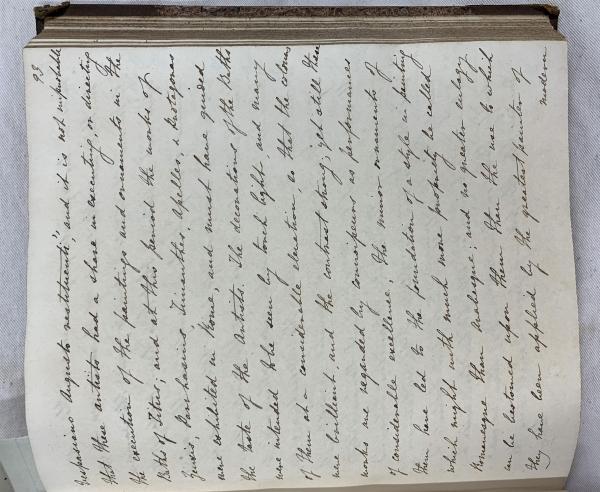 93
Vespasiano Augusto restituenti", and it is not improbable
that these artists had a share in executing or directing
the execution of the paintings and ornaments in the
Baths of Titus; and at this period the works of
Zeuxis, Parrhasius, Timanthes, Apelles, & Protogenes
were exhibited in Rome, and must have guided
the taste of the Artists. The decorations of the Baths
were intended to be seen by torch light, and many
of them at a considerable elevation, so that the colours
were brilliant and the contrast strong; yet still these
works are regarded by connoisseurs as performances
of considerable excellence. The minor ornaments of
them have led to the foundation of a style in painting
which might with much more propriety be called
Romanesque than Arabesque: and no greater eulogy
can be bestowed upon them than the use to which
they have been applied by the greatest painter of
modern